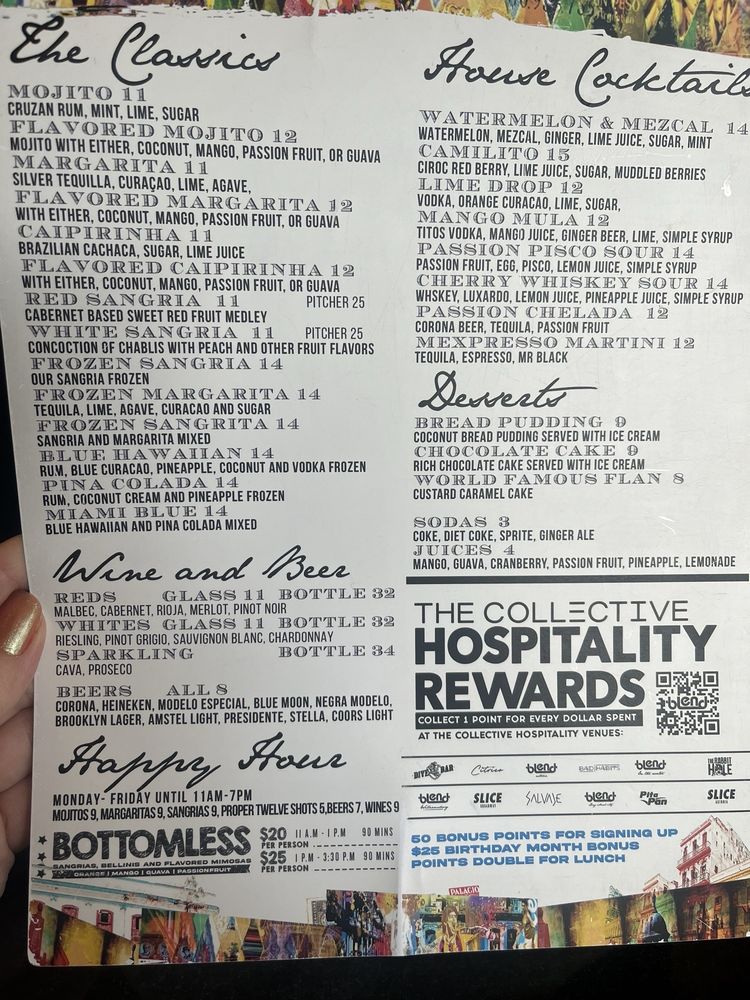 The Classics
MOJITO 11
CRUZAN RUM, MINT, LIME, SUGAR
FLAVORED MOJITO 12
MOJITO WITH EITHER, COCONUT, MANGO, PASSION FRUIT, OR GUAVA
MARGARITA 11
SILVER TEQUILLA, CURAÇAO, LIME, AGAVE,
FLAVORED MARGARITA 12
WITH EITHER, COCONUT, MANGO, PASSION FRUIT, OR GUAVA
CAIPIRINHA 11
BRAZILIAN CACHACA, SUGAR, LIME JUICE
FLAVORED CAIPIRINHA 12
WITH EITHER, COCONUT, MANGO, PASSION FRUIT, OR GUAVA
RED SANGRIA 11 PITCHER 25
CABERNET BASED SWEET RED FRUIT MEDLEY
WHITE SANGRIA 11 PITCHER 25
CONCOCTION OF CHABLIS WITH PEACH AND OTHER FRUIT FLAVORS
FROZEN SANGRIA 14
OUR SANGRIA FROZEN
FROZEN MARGARITA 14
TEQUILA, LIME, AGAVE, CURACAO AND SUGAR
FROZEN SANGRITA 14
SANGRIA AND MARGARITA MIXED
BLUE HAWAIIAN 14
RUM, BLUE CURACAO, PINEAPPLE, COCONUT AND VODKA FROZEN
PINA COLADA 14
RUM, COCONUT CREAM AND PINEAPPLE FROZEN
MIAMI BLUE 14
BLUE HAWAIIAN AND PINA COLADA MIXED
Wine and Beer
REDS GLASS 11 BOTTLE 32
MALBEC, CABERNET, RIOJA, MERLOT, PINOT NOIR
WHITES GLASS 11 BOTTLE 32
RIESLING, PINOT GRIGIO, SAUVIGNON BLANC, CHARDONNAY
SPARKLING BOTTLE 34
CAVA, PROSECO
BEERS ALL 8
CORONA, HEINEKEN, MODELO ESPECIAL, BLUE MOON, NEGRA MODELO,
BROOKLYN LAGER, AMSTEL LIGHT, PRESIDENTE, STELLA, COORS LIGHT
Happy Hour
MONDAY- FRIDAY UNTIL 11AM-7PM
MOJITOS 9, MARGARITAS 9, SANGRIAS 9, PROPER TWELVE SHOTS 5,BEERS 7, WINES 9
BOTTOMLESS
SANGRIAS, BELLINIS AND FLAVORED MIMOSAS
ORANGE | MANGO | GUAVA | PASSIONFRUIT
$20 11 A.M - 1 P.M 90 MINS
PER PERSON
$25 1 P.M - 3:30 P.M 90 MINS
PER PERSON
House Cocktails
WATERMELON & MEZCAL 14
WATERMELON, MEZCAL, GINGER, LIME JUICE, SUGAR, MINT
CAMILITO 15
CIROC RED BERRY, LIME JUICE, SUGAR, MUDDLED BERRIES
LIME DROP 12
VODKA, ORANGE CURACAO, LIME, SUGAR,
MANGO MULA 12
TITOS VODKA, MANGO JUICE, GINGER BEER, LIME, SIMPLE SYRUP
PASSION PISCO SOUR 14
PASSION FRUIT, EGG, PISCO, LEMON JUICE, SIMPLE SYRUP
CHERRY WHISKEY SOUR 14
WHSKEY, LUXARDO, LEMON JUICE, PINEAPPLE JUICE, SIMPLE SYRUP
PASSION CHELADA 12
CORONA BEER, TEQUILA, PASSION FRUIT
MEXPRESSO MARTINI 12
TEQUILA, ESPRESSO, MR BLACK
Desserts
BREAD PUDDING 9
COCONUT BREAD PUDDING SERVED WITH ICE CREAM
CHOCOLATE CAKE 9
RICH CHOCOLATE CAKE SERVED WITH ICE CREAM
WORLD FAMOUS FLAN 8
CUSTARD CARAMEL CAKE
SODAS 3
COKE, DIET COKE, SPRITE, GINGER ALE
JUICES 4
MANGO, GUAVA, CRANBERRY, PASSION FRUIT, PINEAPPLE, LEMONADE
THE COLLECTIVE
HOSPITALITY
REWARDS
blend
COLLECT 1 POINT FOR EVERY DOLLAR SPENT
AT THE COLLECTIVE HOSPITALITY VENUES:
DIVE BAR Citrico blend BAD HABITS blend THE RABBIT HOLE
blend SLICE SALVAJE blend Pita Pan SLICE
50 BONUS POINTS FOR SIGNING UP
$25 BIRTHDAY MONTH BONUS
POINTS DOUBLE FOR LUNCH
PALACIO